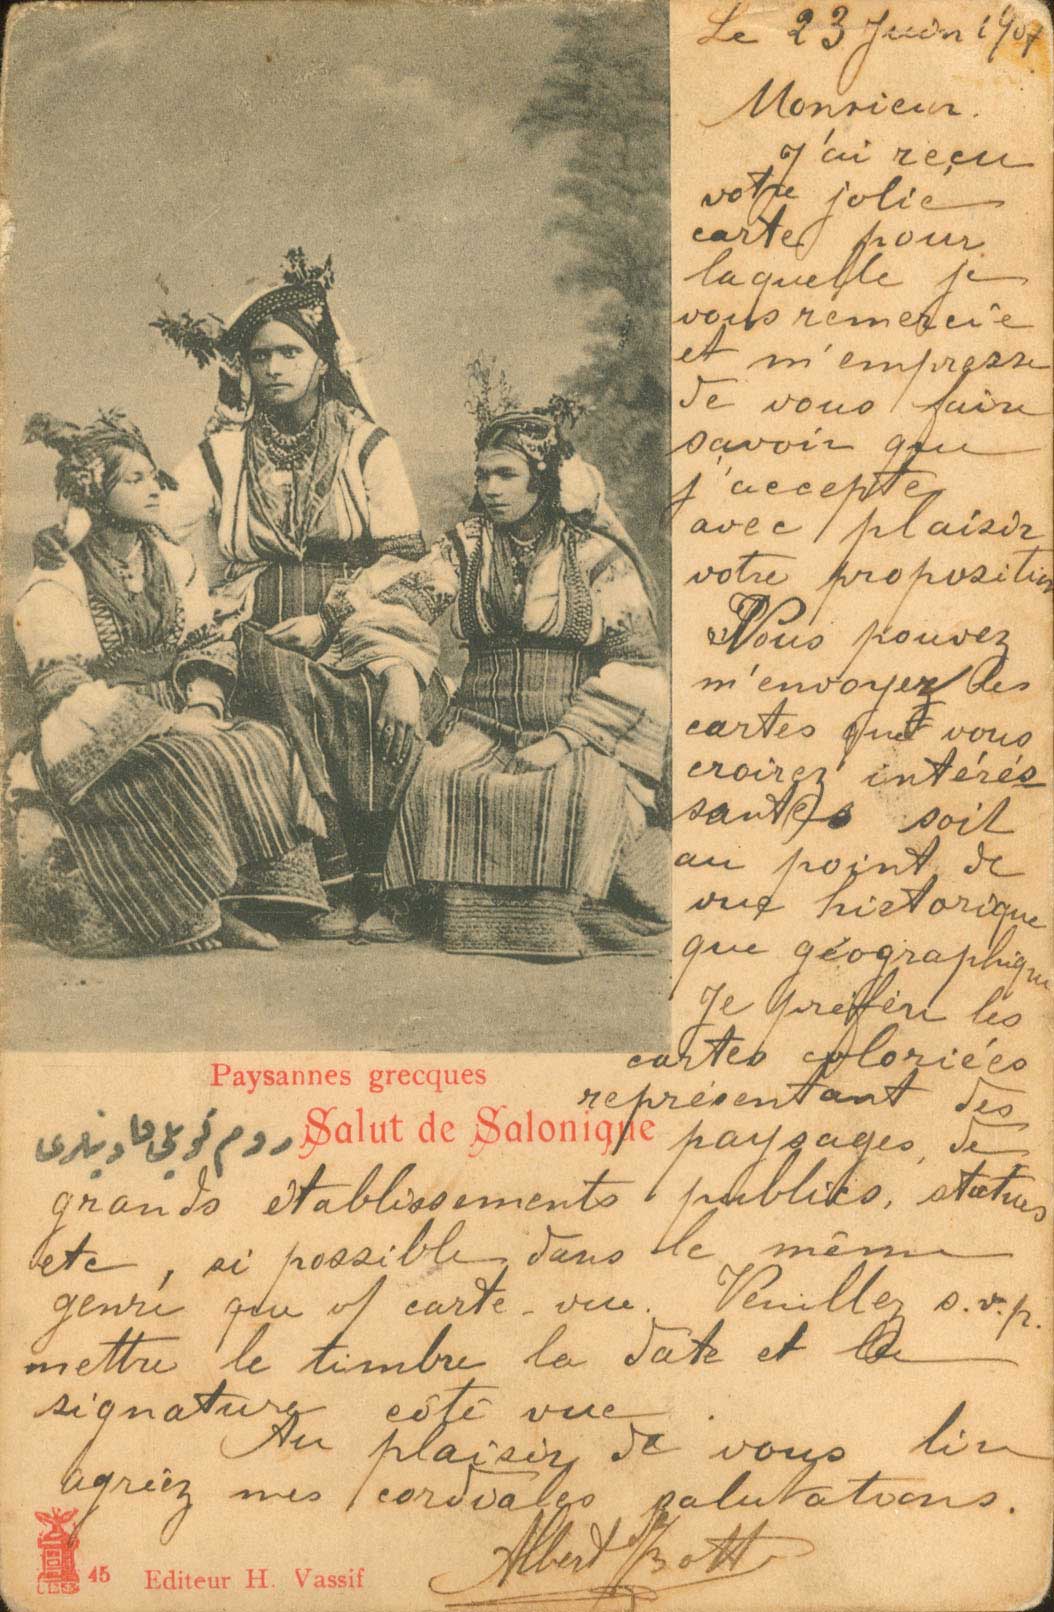 Le 23 Juin 1907
Monsieur.
J'ai reçu
votre jolie
carte pour
laquelle je
vous remercie
et m'empresse
de vous faire
savoir que
j'accepte
avec plaisir
votre proposition
Vous pouvez
m'envoyez les
cartes que vous
croirez intéres
santes soit
au point de
vue historique
que géographique
Je préfère les
cartes coloriées
représentant des
paysages, de
grands établissements publics, statues
etc, si possible dans le même
genre que v/ carte-vue. Veuillez s.v.p.
mettre le timbre la date et la
signature côté vue.
Au plaisir de vous lire
agréez mes cordiales salutations.
Albert Botto
Paysannes grecques
Salut de Salonique
روم كويلى قادينلرى
45 Editeur H. Vassif